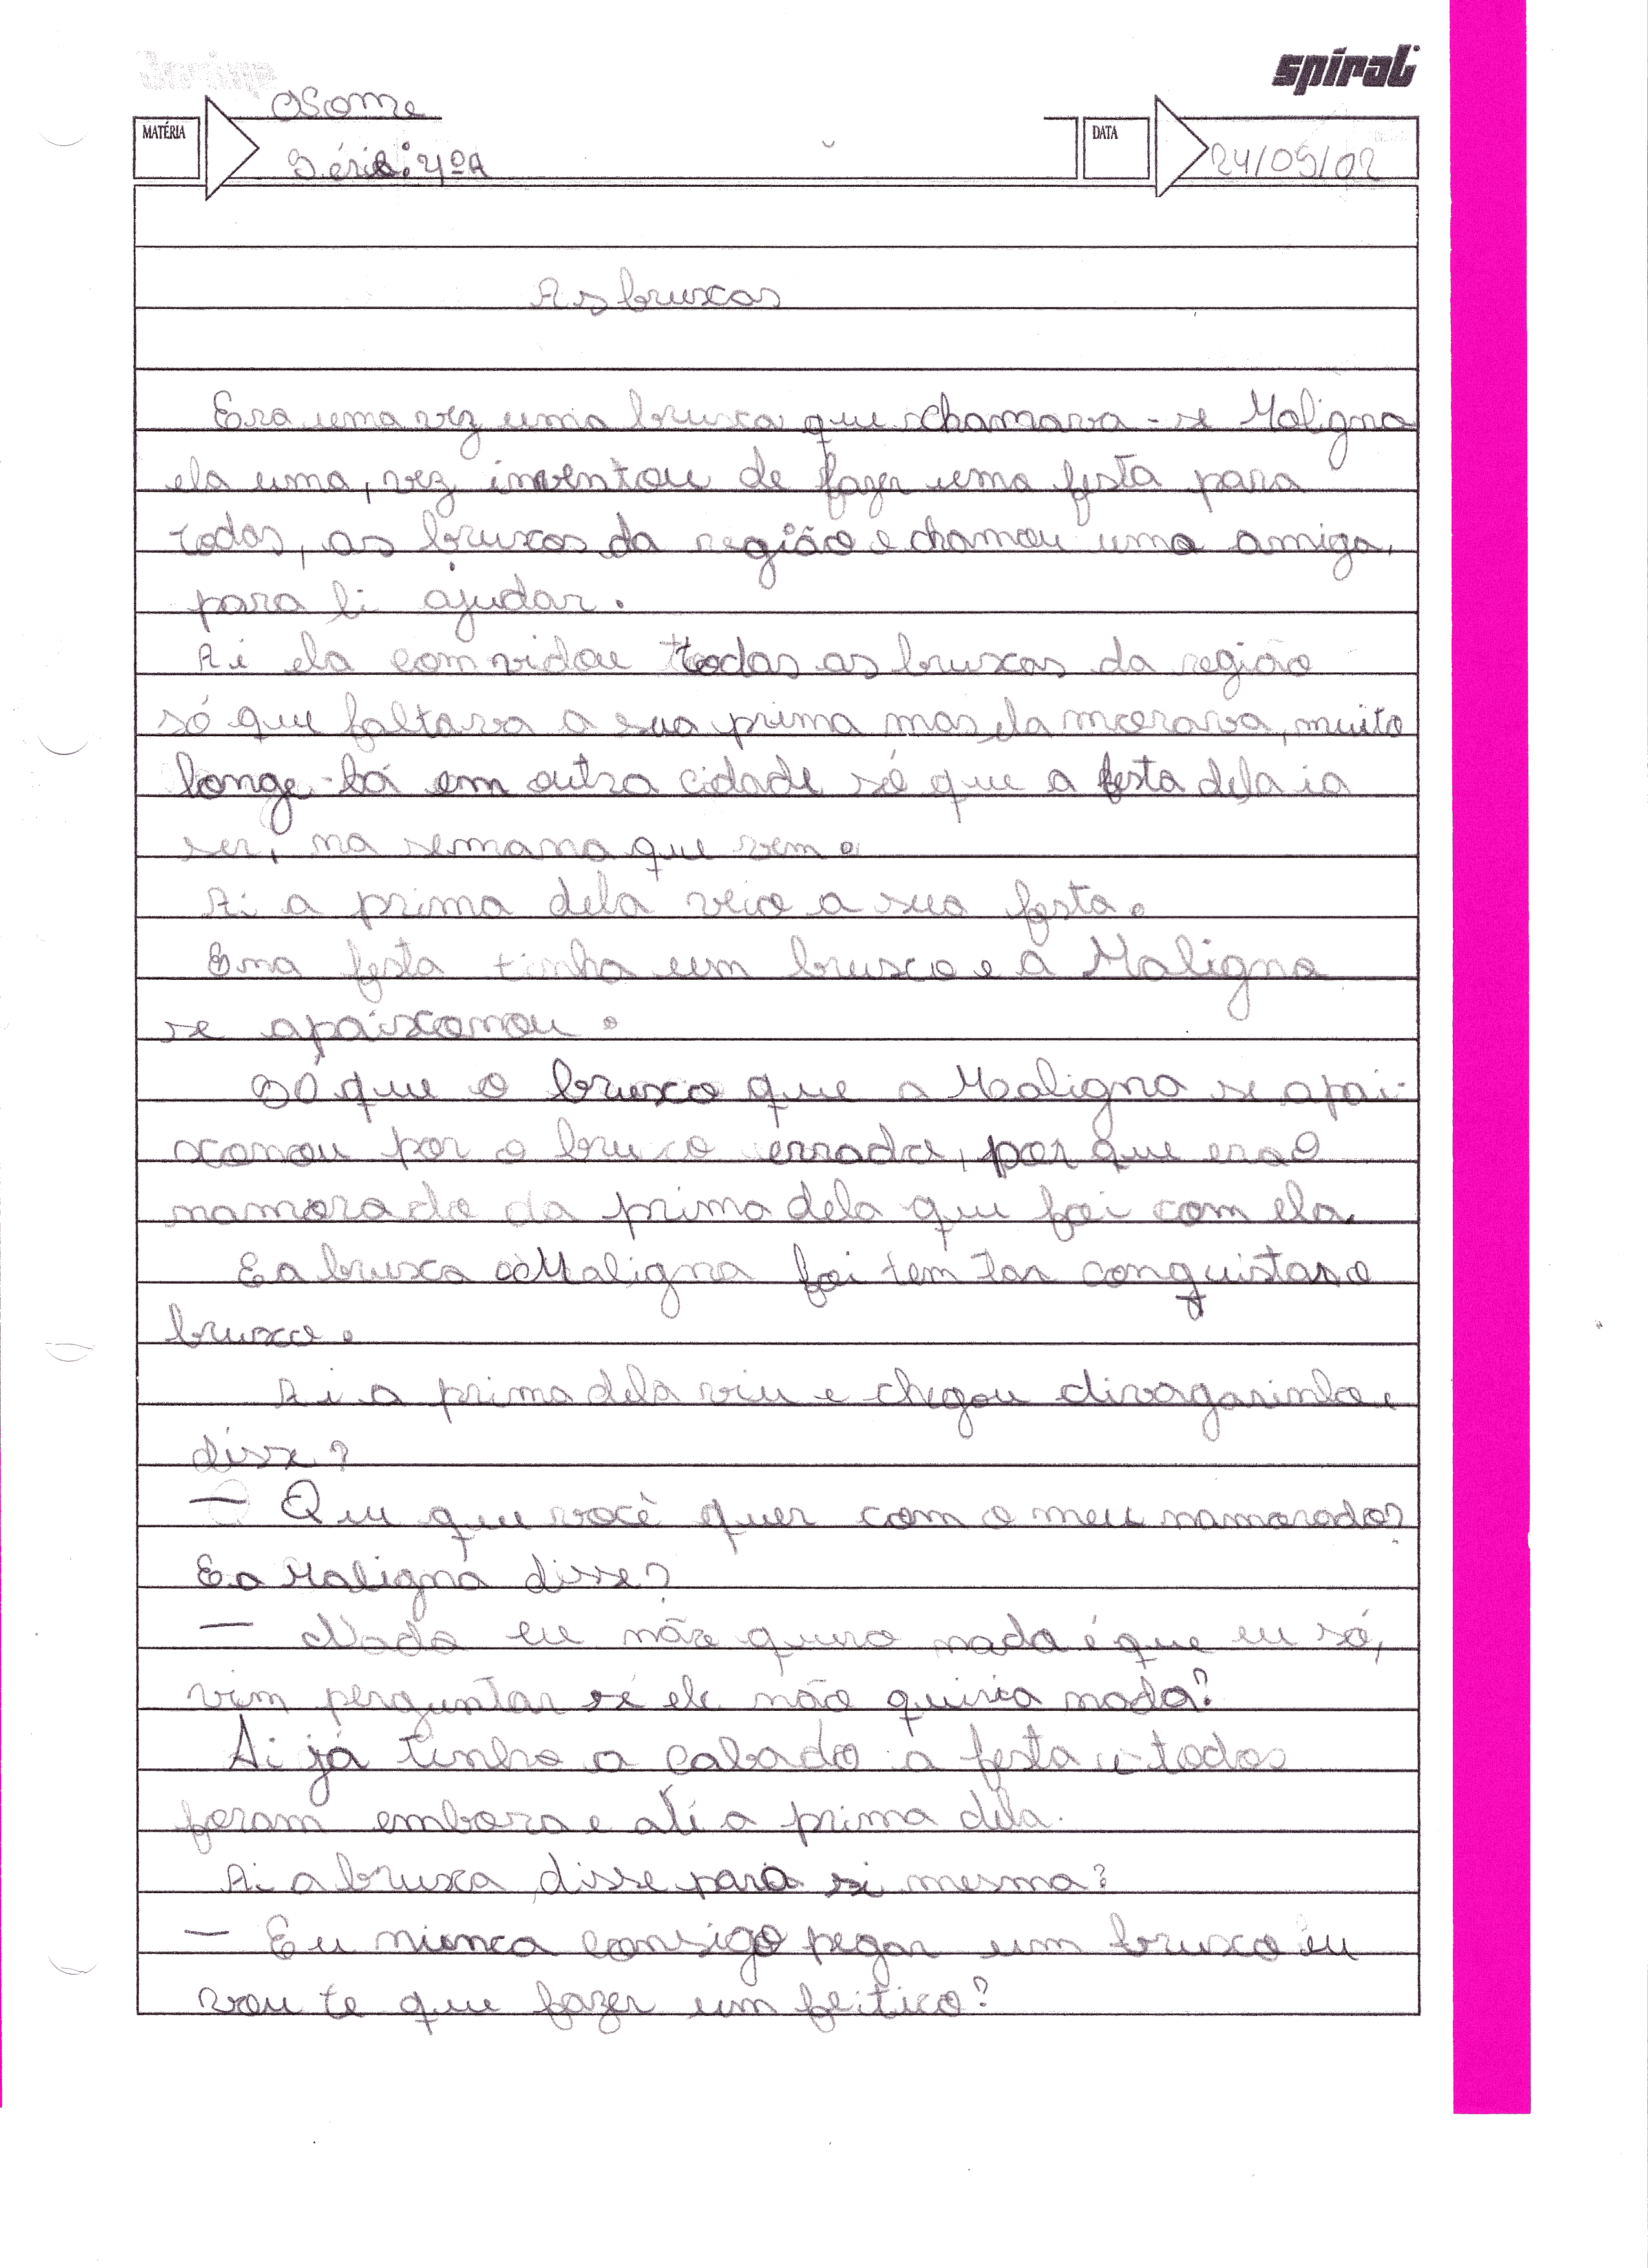 spiral
Nome
MATÉRIA
Série: 4ºA
DATA
24/09/02
As bruxas
Era uma vez uma bruxa que chamava-se Maligna
ela uma, vez inventou de fazer uma festa para
todas, as bruxas da região e chamou uma amiga,
para li ajudar.
Ai ela comvidou todas as bruxas da região
só que faltava a sua prima mas ela morava, muito
longe lá em outra cidade só que a festa dela ia
ser, na semana que vem.
Ai a prima dela veio a sua festa.
E na festa tinha um bruxo e a Maligna
se apaixonou.
Só que o bruxo que a Maligna se apai-
xonou por o bruxo errado, por que era o
namorado da prima dela que foi com ela.
E a bruxa Maligna foi tem tar conquistar o
bruxo.
Ai a prima dela viu e chegou divagarinho e
disse?
— Que que você quer com o meu namorado?
E a Maligna disse?
— Nada eu não quero nada é que eu só,
vim perguntar se ele não quiria nada?
Ai já tinha a cabado a festa e todos
foram embora e até a prima dela.
Ai a bruxa disse para si mesma?
— Eu nunca consigo pegar um bruxo eu
vou te que fazer um feitico?